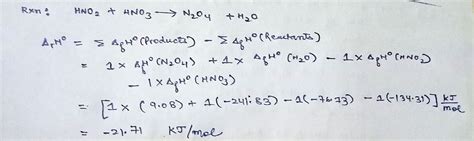 Rxn: HNO2 + HNO3 ⟶ N2O4 + H2O
ΔrH° = Σ ΔfH° (Products) - Σ ΔfH° (Reactants)
= 1 x ΔfH° (N2O4) + 1 x ΔfH° (H2O) - 1 x ΔfH° (HNO2)
- 1 x ΔfH° (HNO3)
= [1 x (9.08) + 1(-241.83) - 1(-76.73) - 1(-134.31)] KJ/mol
= -21.71 KJ/mol